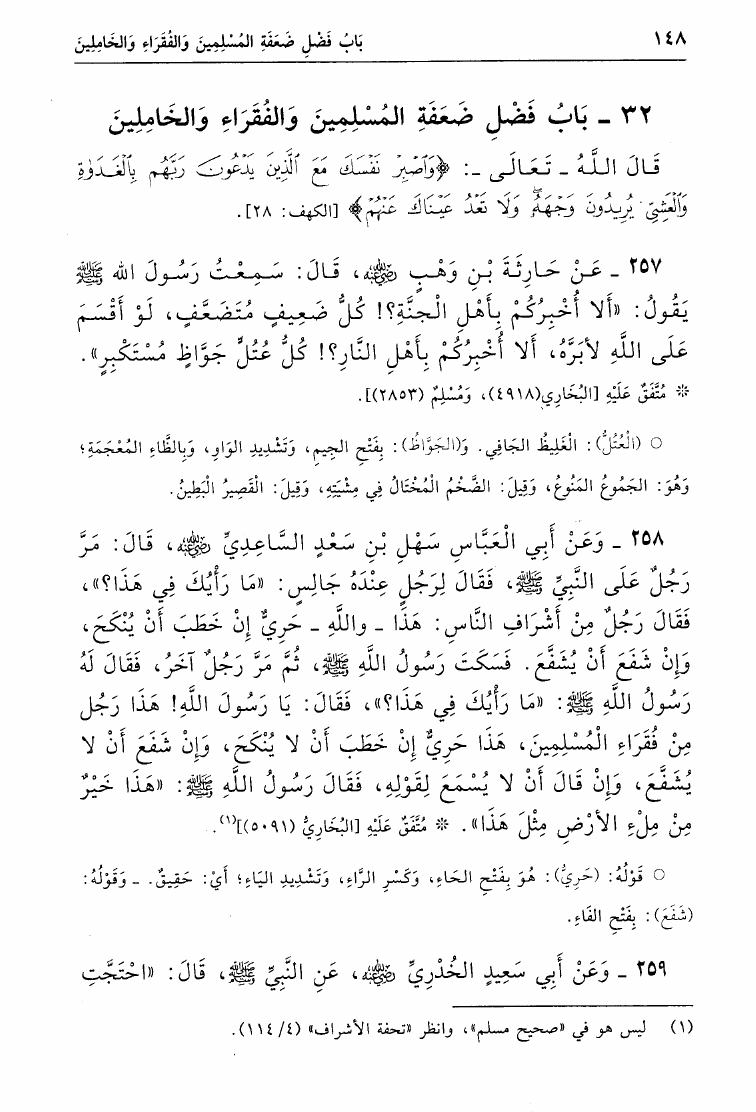 ١٤٨ بَابُ فَضْلِ ضَعَفَةِ المُسْلِمِينَ وَالفُقَرَاءِ وَالخَامِلِينَ
٣٢ ـ بَابُ فَضْلِ ضَعَفَةِ المُسْلِمِينَ وَالفُقَرَاءِ وَالخَامِلِينَ
قَالَ اللَّهُ ـ تَعَالَى ـ: ﴿وَٱصْبِرْ نَفْسَكَ مَعَ ٱلَّذِينَ يَدْعُونَ رَبَّهُم بِٱلْغَدَوٰةِ
وَٱلْعَشِيِّ يُرِيدُونَ وَجْهَهُۥۖ وَلَا تَعْدُ عَيْنَاكَ عَنْهُمْ﴾ [الكهف: ٢٨].
٢٥٧ ـ عَنْ حَارِثَةَ بْنِ وَهْبٍ رضي الله عنه، قَالَ: سَمِعْتُ رَسُولَ الله ﷺ
يَقُولُ: «أَلا أُخْبِرُكُمْ بِأَهْلِ الْجنَّةِ؟! كُلُّ ضَعِيفٍ مُتَضَعَّفٍ، لَوْ أَقْسَمَ
عَلَى اللَّهِ لأَبَرَّهُ، أَلا أُخْبِرُكُمْ بِأَهْلِ النَّارِ؟! كُلُّ عُتُلٍّ جَوَّاظٍ مُسْتَكْبِرٍ».
* مُتَّفَقٌ عَلَيْهِ [البُخَارِي(٤٩١٨)، وَمُسْلِمٌ (٢٨٥٣)].
○ (الْعُتُلُّ): الْغَلِيظُ الجَافِي. وَ(الجَوَّاظُ): بِفَتْحِ الجِيمِ، وَتَشْدِيدِ الوَاوِ، وَبِالظَّاءِ المُعْجَمَةِ؛
وَهُوَ: الجَمُوعُ المَنُوعُ، وَقِيلَ: الضَّخْمُ المُخْتَالُ فِي مِشْيَتِهِ، وَقِيلَ: الْقَصِيرُ الْبَطِينُ.
٢٥٨ ـ وَعَنْ أَبِي الْعَبَّاسِ سَهْلِ بْنِ سَعْدٍ السَّاعِدِيِّ رضي الله عنه، قَالَ: مَرَّ
رَجُلٌ عَلَى النَّبِيِّ ﷺ، فَقَالَ لِرَجُلٍ عِنْدَهُ جَالِسٍ: «مَا رَأْيُكَ فِي هَذَا؟»،
فَقَالَ رَجُلٌ مِنْ أَشْرَافِ النَّاسِ: هَذَا ـ واللَّهِ ـ حَرِيٌّ إِنْ خَطَبَ أَنْ يُنْكَحَ،
وَإِنْ شَفَعَ أَنْ يُشَفَّعَ. فَسَكَتَ رَسُولُ اللَّهِ ﷺ، ثُمَّ مَرَّ رَجُلٌ آخَرُ، فَقَالَ لَهُ
رَسُولُ اللَّهِ ﷺ: «مَا رَأْيُكَ فِي هَذَا؟»، فَقَالَ: يَا رَسُولَ اللَّهِ! هَذَا رَجُل
مِنْ فُقَرَاءِ الْمُسْلِمِينَ، هَذَا حَرِيٌّ إِنْ خَطَبَ أَنْ لا يُنْكَحَ، وَإِنْ شَفَعَ أَنْ لا
يُشَفَّعَ، وَإِنْ قَالَ أَنْ لا يُسْمَعَ لِقَوْلِهِ، فَقَالَ رَسُولُ اللَّهِ ﷺ: «هَذَا خَيْرٌ
مِنْ مِلْءِ الأَرْضِ مِثْلَ هَذَا». * مُتَّفَقٌ عَلَيْهِ [البُخَارِيُّ (٥٠٩١)](١).
○ قَوْلُهُ: (حَرِيٌّ): هُوَ بِفَتْحِ الحَاءِ، وَكَسْرِ الرَّاءِ، وَتَشْدِيدِ اليَاءِ؛ أَيْ: حَقِيقٌ. ـ وَقَوْلُهُ:
(شَفَعَ): بِفَتْحِ الفَاءِ.
٢٥٩ ـ وَعَنْ أَبِي سَعِيدٍ الخُدْرِيِّ رضي الله عنه، عَنِ النَّبِيِّ ﷺ، قَالَ: «احْتَجَّتِ
(١) ليس هو في «صحيح مسلم»، وانظر «تحفة الأشراف» (٤/ ١١٤).